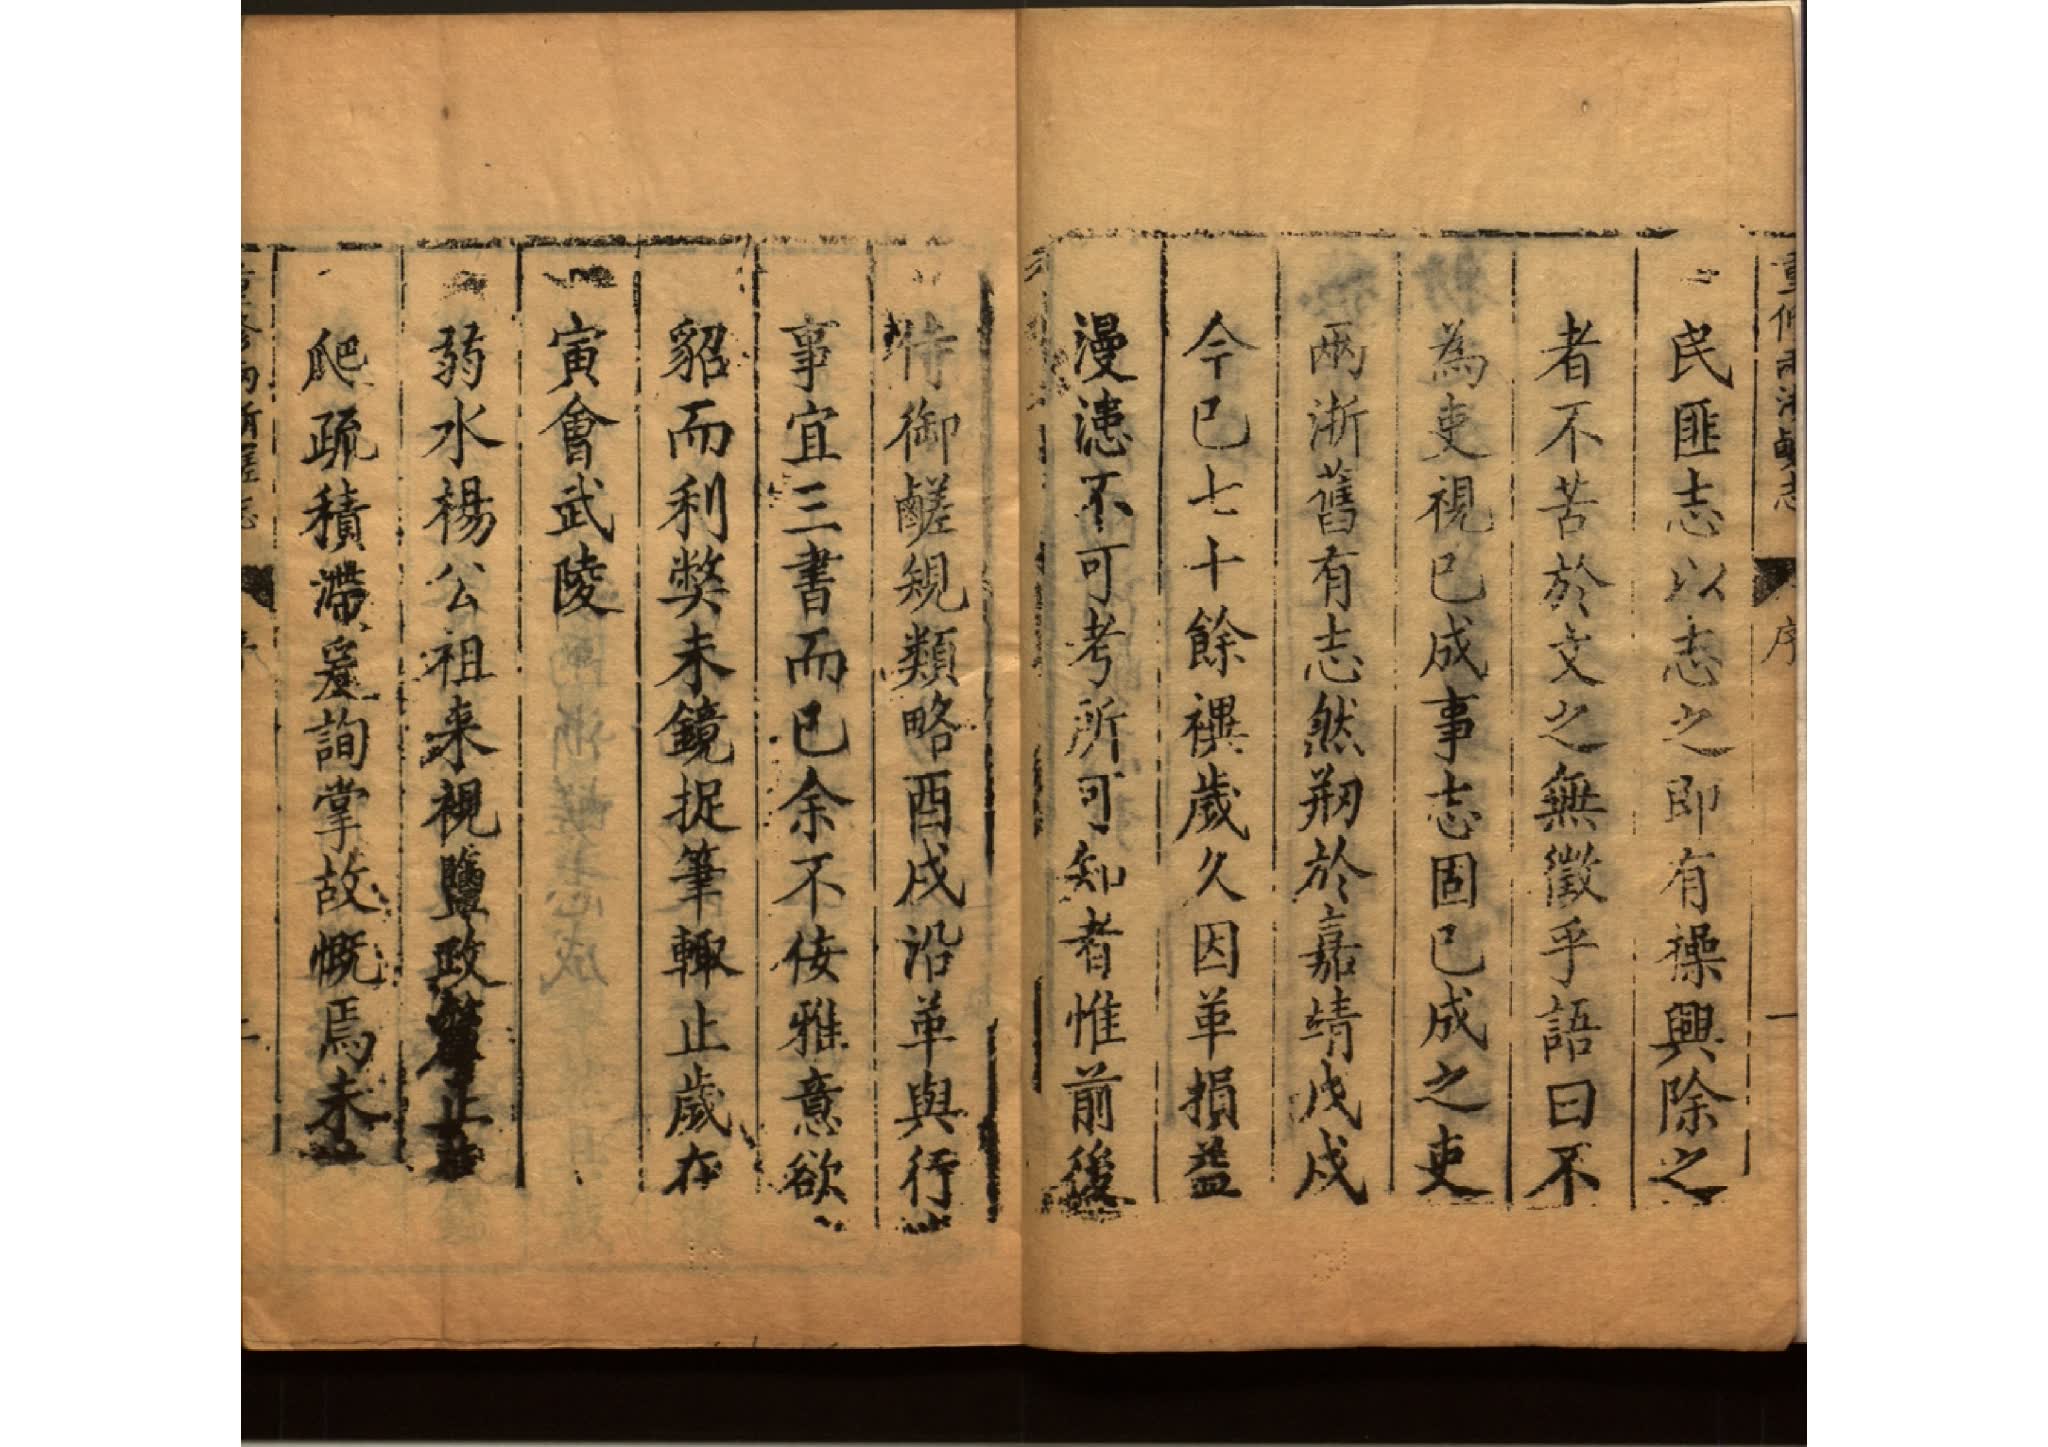 重修兩浙鹺志
序
一
民匪志以志之即有操興除之
者不苦於文之無徵乎語曰不
為吏視已成事志固已成之吏
兩浙舊有志然剏於嘉靖戊戌
今已七十餘禩歲久因革損益
漫漶不可考所可知者惟前後
侍御鹺規類略酉戌沿革與行
事宜三書而已余不佞雅意欲
貂而利弊未鏡捉筆輙止歲在
寅會武陵
弱水楊公祖来視鹽政
爬疏積滯爰詢掌故慨焉未
重修兩浙鹺志
序
二